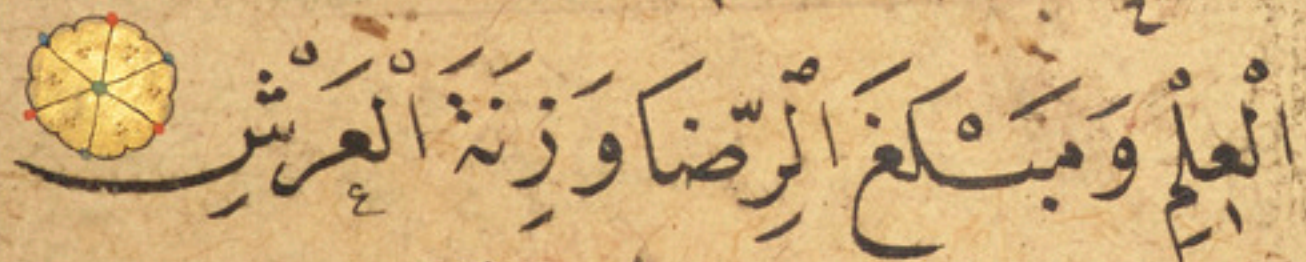 الْعِلْمِ وَمَبْلَغَ الْرِّضَا وَزِنَةَ الْعَرْشِ